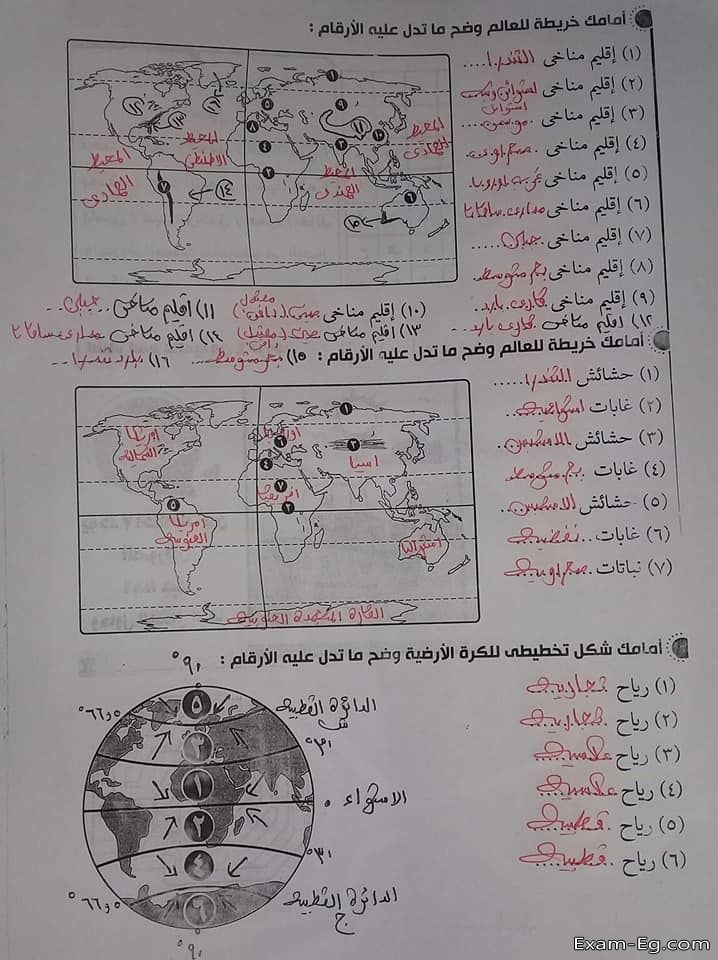 أمامك خريطة للعالم وضح ما تدل عليه الأرقام :
(١) إقليم مناخى التندرا....
(٢) إقليم مناخى استوائى وشبه استوائى
(٣) إقليم مناخى موسمى....
(٤) إقليم مناخى صحراوى..
(٥) إقليم مناخى غرب اوروبا
(٦) إقليم مناخى مدارى سافانا
(٧) إقليم مناخى جبلى.....
(٨) إقليم مناخى بحر متوسط.
(٩) إقليم مناخى قارى بارد.
(١٠) إقليم مناخى صينى (دافئ) معتدل
(١١) اقليم مناخى.. جبلى..
(١٢) اقليم مناخى قارى بارد...
(١٣) اقليم مناخى صينى (معتدل) دافئ
(١٤) اقليم مناخى مدارى سافانا
(١٥) بحر متوسط...
(١٦) بارد تندرا..
المحيط الهادى
المحيط الاطلنطى
المحيط الهندى
المحيط الهادى
١ ٢ ٢ ٤ ٥ ٦ ٧ ٨ ٩ ١٠ ١١ ١٢ ١٣ ١٤ ١٥
أمامك خريطة للعالم وضح ما تدل عليه الأرقام :
(١) حشائش التندرا.....
(٢) غابات استوائية..
(٣) حشائش الاستبس.
(٤) غابات بحر متوسط
(٥) حشائش الاستبس..
(٦) غابات.. نفضية..
(٧) نباتات صحراوية..
امريكا الشمالية
اوروبا
اسيا
افريقيا
امريكا الجنوبية
استراليا
القارة المتجمدة الجنوبية
١ ٢ ٣ ٤ ٥ ٦ ٧
أمامك شكل تخطيطى للكرة الأرضية وضح ما تدل عليه الأرقام :
(١) رياح تجارية..
(٢) رياح تجارية..
(٣) رياح عكسية
(٤) رياح عكسية
(٥) رياح قطبية
(٦) رياح قطبية
٩٠°
٦٦٫٥°
الدائرة القطبية ش
٣٠°
الاستواء ٠
٣٠°
٦٦٫٥°
الدائرة القطبية ج
٩٠°
٥
٣
١
٢
٤
٦
Exam-Eg.com